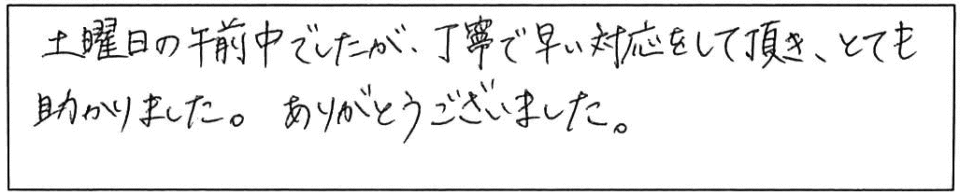 土曜日の午前中でしたが、丁寧で早い対応をして頂き、とても
助かりました。 ありがとうございました。